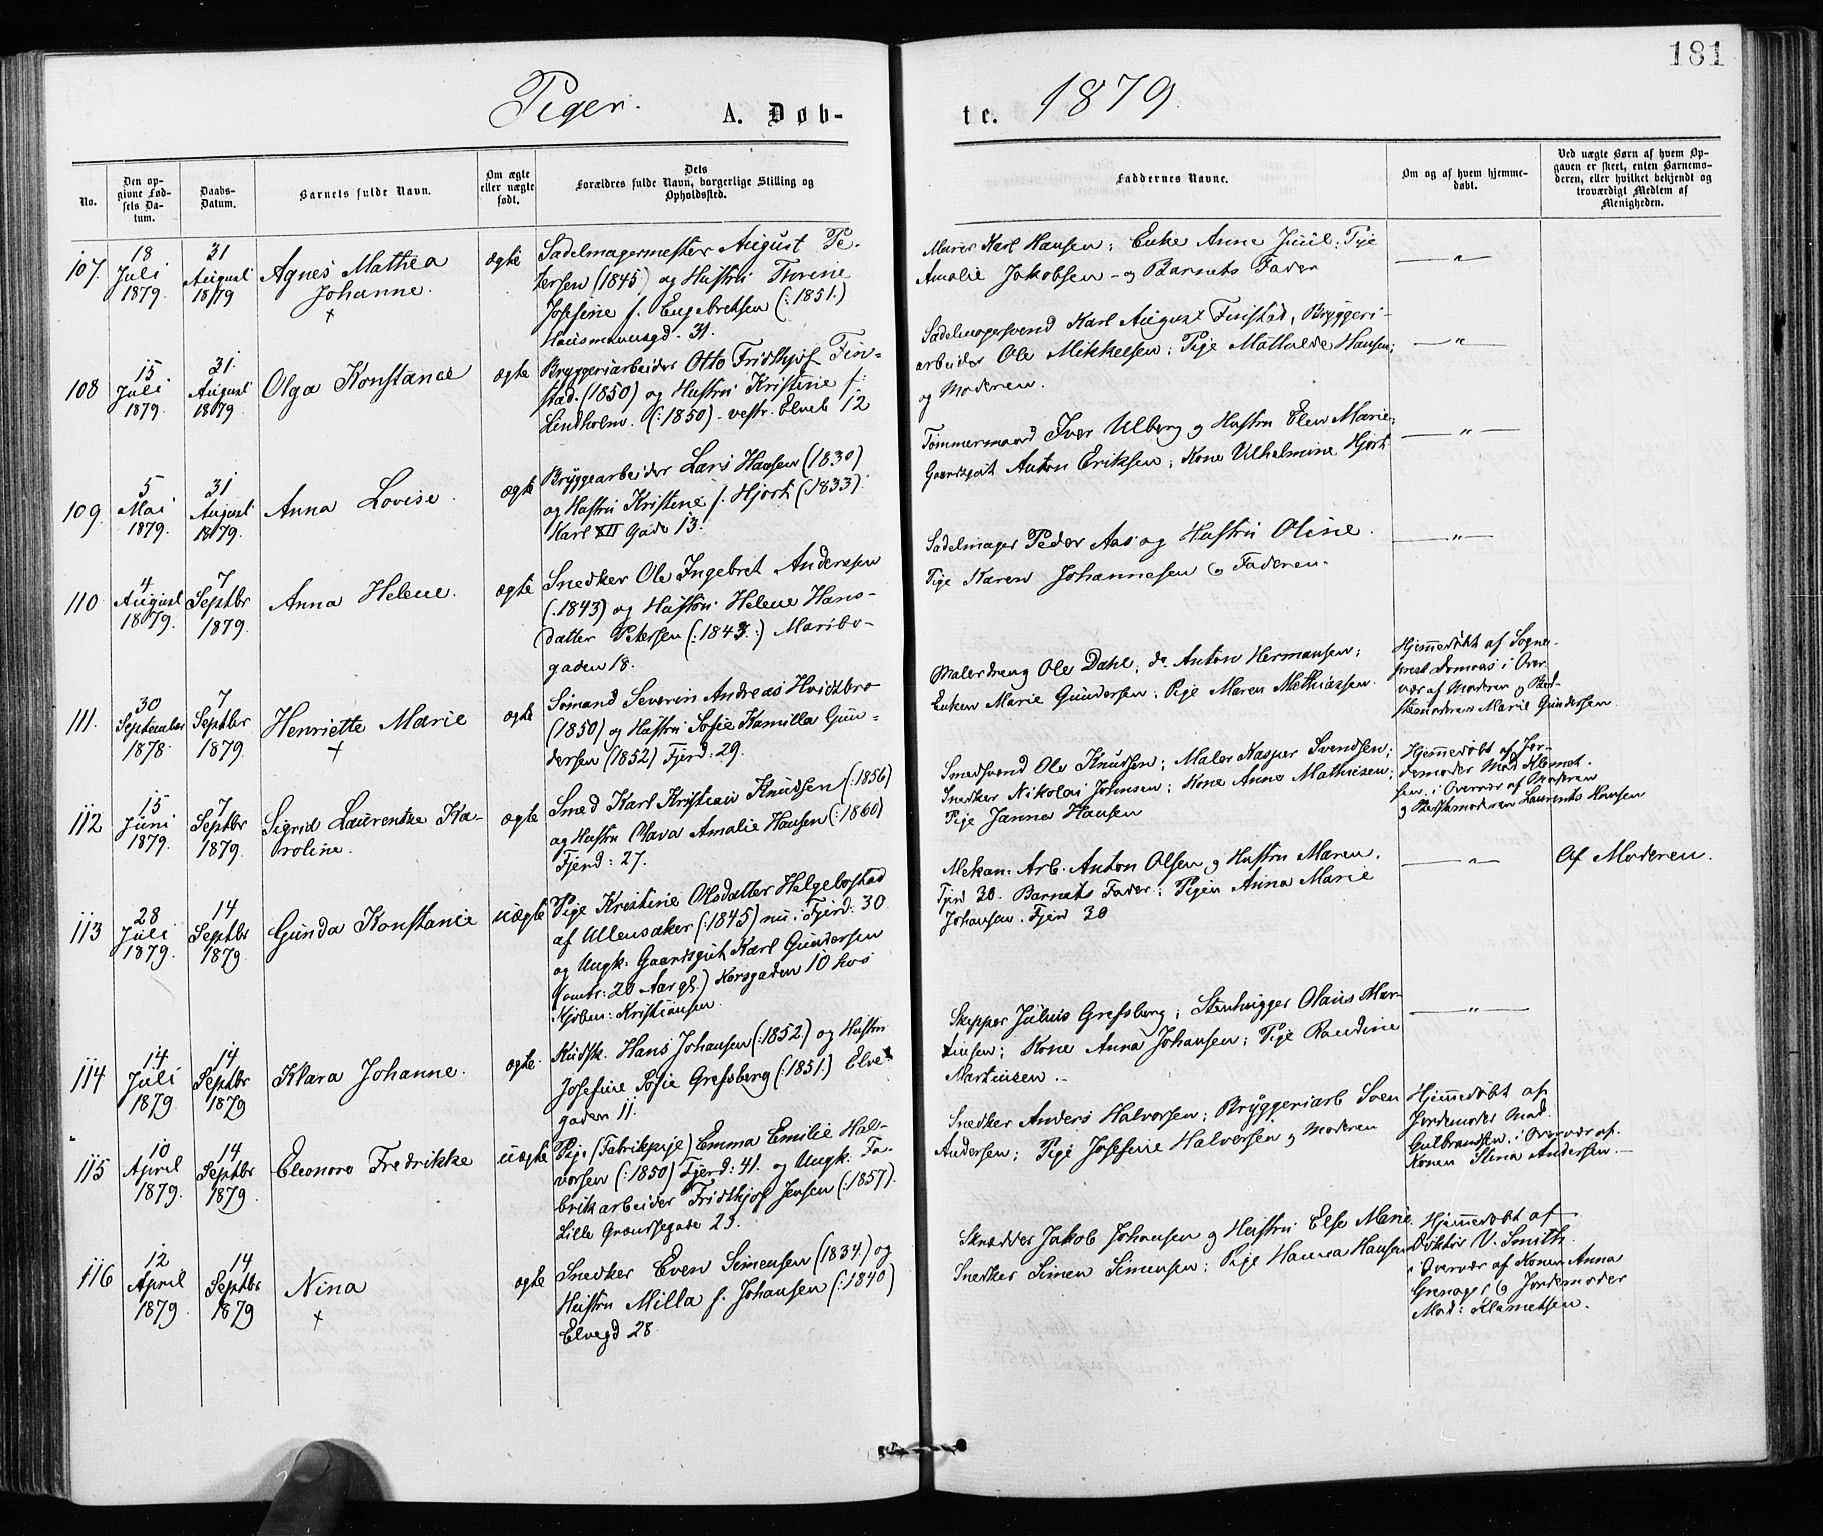 181
Piger. A. Døb-
te. 1879.
No.
Den op-
givne Fød-
sels Da-
tum.
Daabs-
Datum.
Barnets fulde Navn.
Om ægte
eller uægte
født.
Dets
Forældres fulde Navn, borgerlige Stilling og
Opholdssted.
Faddernes Navne.
Om og af hvem hjemme-
døbt.
Ved uægte Børn af hvem Op-
gaven er skeet, enten Barnemo-
deren, eller hvilket bekjendt og
troværdigt Medlem af
Menigheden.
107.
18
Juli
1879.
31
August
1879
Agnes Mathea
Johanne.
+
ægte
Sadelmagermester August Pe-
tersen (1845) og Hustru Thrine
Josefine f. Engebretsen (:1851.)
Hausmannsgd. 31.
Murer Karl Hansen; Enke Anne Juul; Pige
Amalie Jakobsen - og Barnets Fader
— „ —
108
15
Juli
1879.
31.
August
1879.
Olga Konstance
ægte
Bryggeriarbeider Otto Fridthjof Fin-
stad. (1850) og Hustru Kristine f.
Lindholm. (:1850) - vestr. Elveb 12
Sadelmagersvend Karl August Finstad, Bryggeri-
arbeider Ole Mikkelsen; Pige Mathilde Hansen;
og Moderen.
— „ —
109.
5
Mai
1879.
31
August
1879.
Anna Lovise.
ægte
Bryggearbeider Lars Hansen (1830)
og Hustru Kristine f. Hjort (:1833).
Karl XII Gade 13.
Tømmermand Iver Ulberg og Hustru Elen Marie;
Gaardsgut Anton Eriksen; Kone Vilhelmine Hjort
— „ —
110
4
August
1879.
7
Septbr
1879.
Anna Helene.
ægte
Snedker Ole Ingebret Andersen
(.1843) og Hustru Helene Hans-
datter Petersen (:1843.:) Maribo-
gaden 18.
Sadelmager Peder Aas og Hustru Oline.
Pige Karen Johannesen og Faderen.
— „ —
111.
30
September
1878.
7
Septbr
1879.
Henriette Marie
+
ægte
Sømand Severin Andreas Hvidtbro
(1850) og Hustru Sofie Kamilla Gun-
dersen (1852) Fjerd: 29.
Malerdreng Ole Dahl; do Anton Hermansen;
Enken Marie Gundersen; Pige Maren Mathiassen.
Hjemmedøbt af Sogne-
prest Domaas i Over-
vær af Moderen og Bed-
stemoderen Marie Gundersen.
112
15
Juni
1879.
7
Septbr
1879.
Sigrid Laurentze Ka-
roline.
ægte
Smed Karl Kristian Knudsen (:1856)
og Hustru Olava Amalie Hansen (:1860)
Fjerd: 27.
Smedsvend Ole Knudsen; Maler Kasper Svendsen;
Snedker Nikolai Johnsen; Kone Anne Mathisen;
Pige Janna Hansen
Hjemmedøbt af Jor-
demoder Mad. Klemet-
sen, i Overvær af Moderen
og Bedstemoderen Laurents Hansen
113
28
Juli
1879.
14
Septbr
1879
Gunda Konstance
uægte
Pige Kristine Olsdatter Helgebostad
af Ullensaker (:1845) nu i Fjerd: 30
og Ungk: Gaardsgut Karl Gundersen
(omtr: 20 Aar gl.) Korsgaden 10 hos
Kjøbm: Kristiansen.
Mekan. Arb. Anton Olsen og Hustru Maren,
Fjrd 30. Barnets Fader; Pigen Anna Marie
Johansen. Fjerd 30
— „ —
Af Moderen.
114
14
Juli
1879
14
Septbr
1879
Klara Johanne.
ægte.
Kudsk. Hans Johansen (:1852) og Hustru
Josefine Sofie Grefsberg (:1851.) Elve-
gaden 11.
Skipper Julius Grefsberg; Stenhugger Olaus Mar-
tinsen; Kone Anna Johansen; Pige Randine
Martinsen.
— „ —
115
10
April
1879.
14
Septbr
1879.
Eleonora Fredrikke
uægte
Pige (Fabrikpige) Emma Emilie Hal-
vorsen (:1850) Fjerd: 41. og Ungk: Fa-
brikarbeider Fridthjof Jensen (:1857).
Lille Grændsegade 23.
Snedker Anders Halvorsen; Bryggeriarb Sven
Andersen; Pige Josefine Halversen og Moderen
Hjemmedøbt af
Jordemoder Mad.
Gulbrandsen, i Overvær af
Konen Stina Andersen.—
116
12
April
1879
14
Septbr
1879
Nina
+
ægte
Snedker Even Simensen (1834.) og
Hustru Milla f. Johansen (:1840)
Elvegd 28
Skrædder Jakob Johansen og Hustru Else Marie
Snedker Simen Simensen; Pige Hanna Hansen
Hjemmedøbt af
Doktor V. Smith
i Overvær af Konen Anna
Grenager og Jordemoder
Mad: Klametsen.